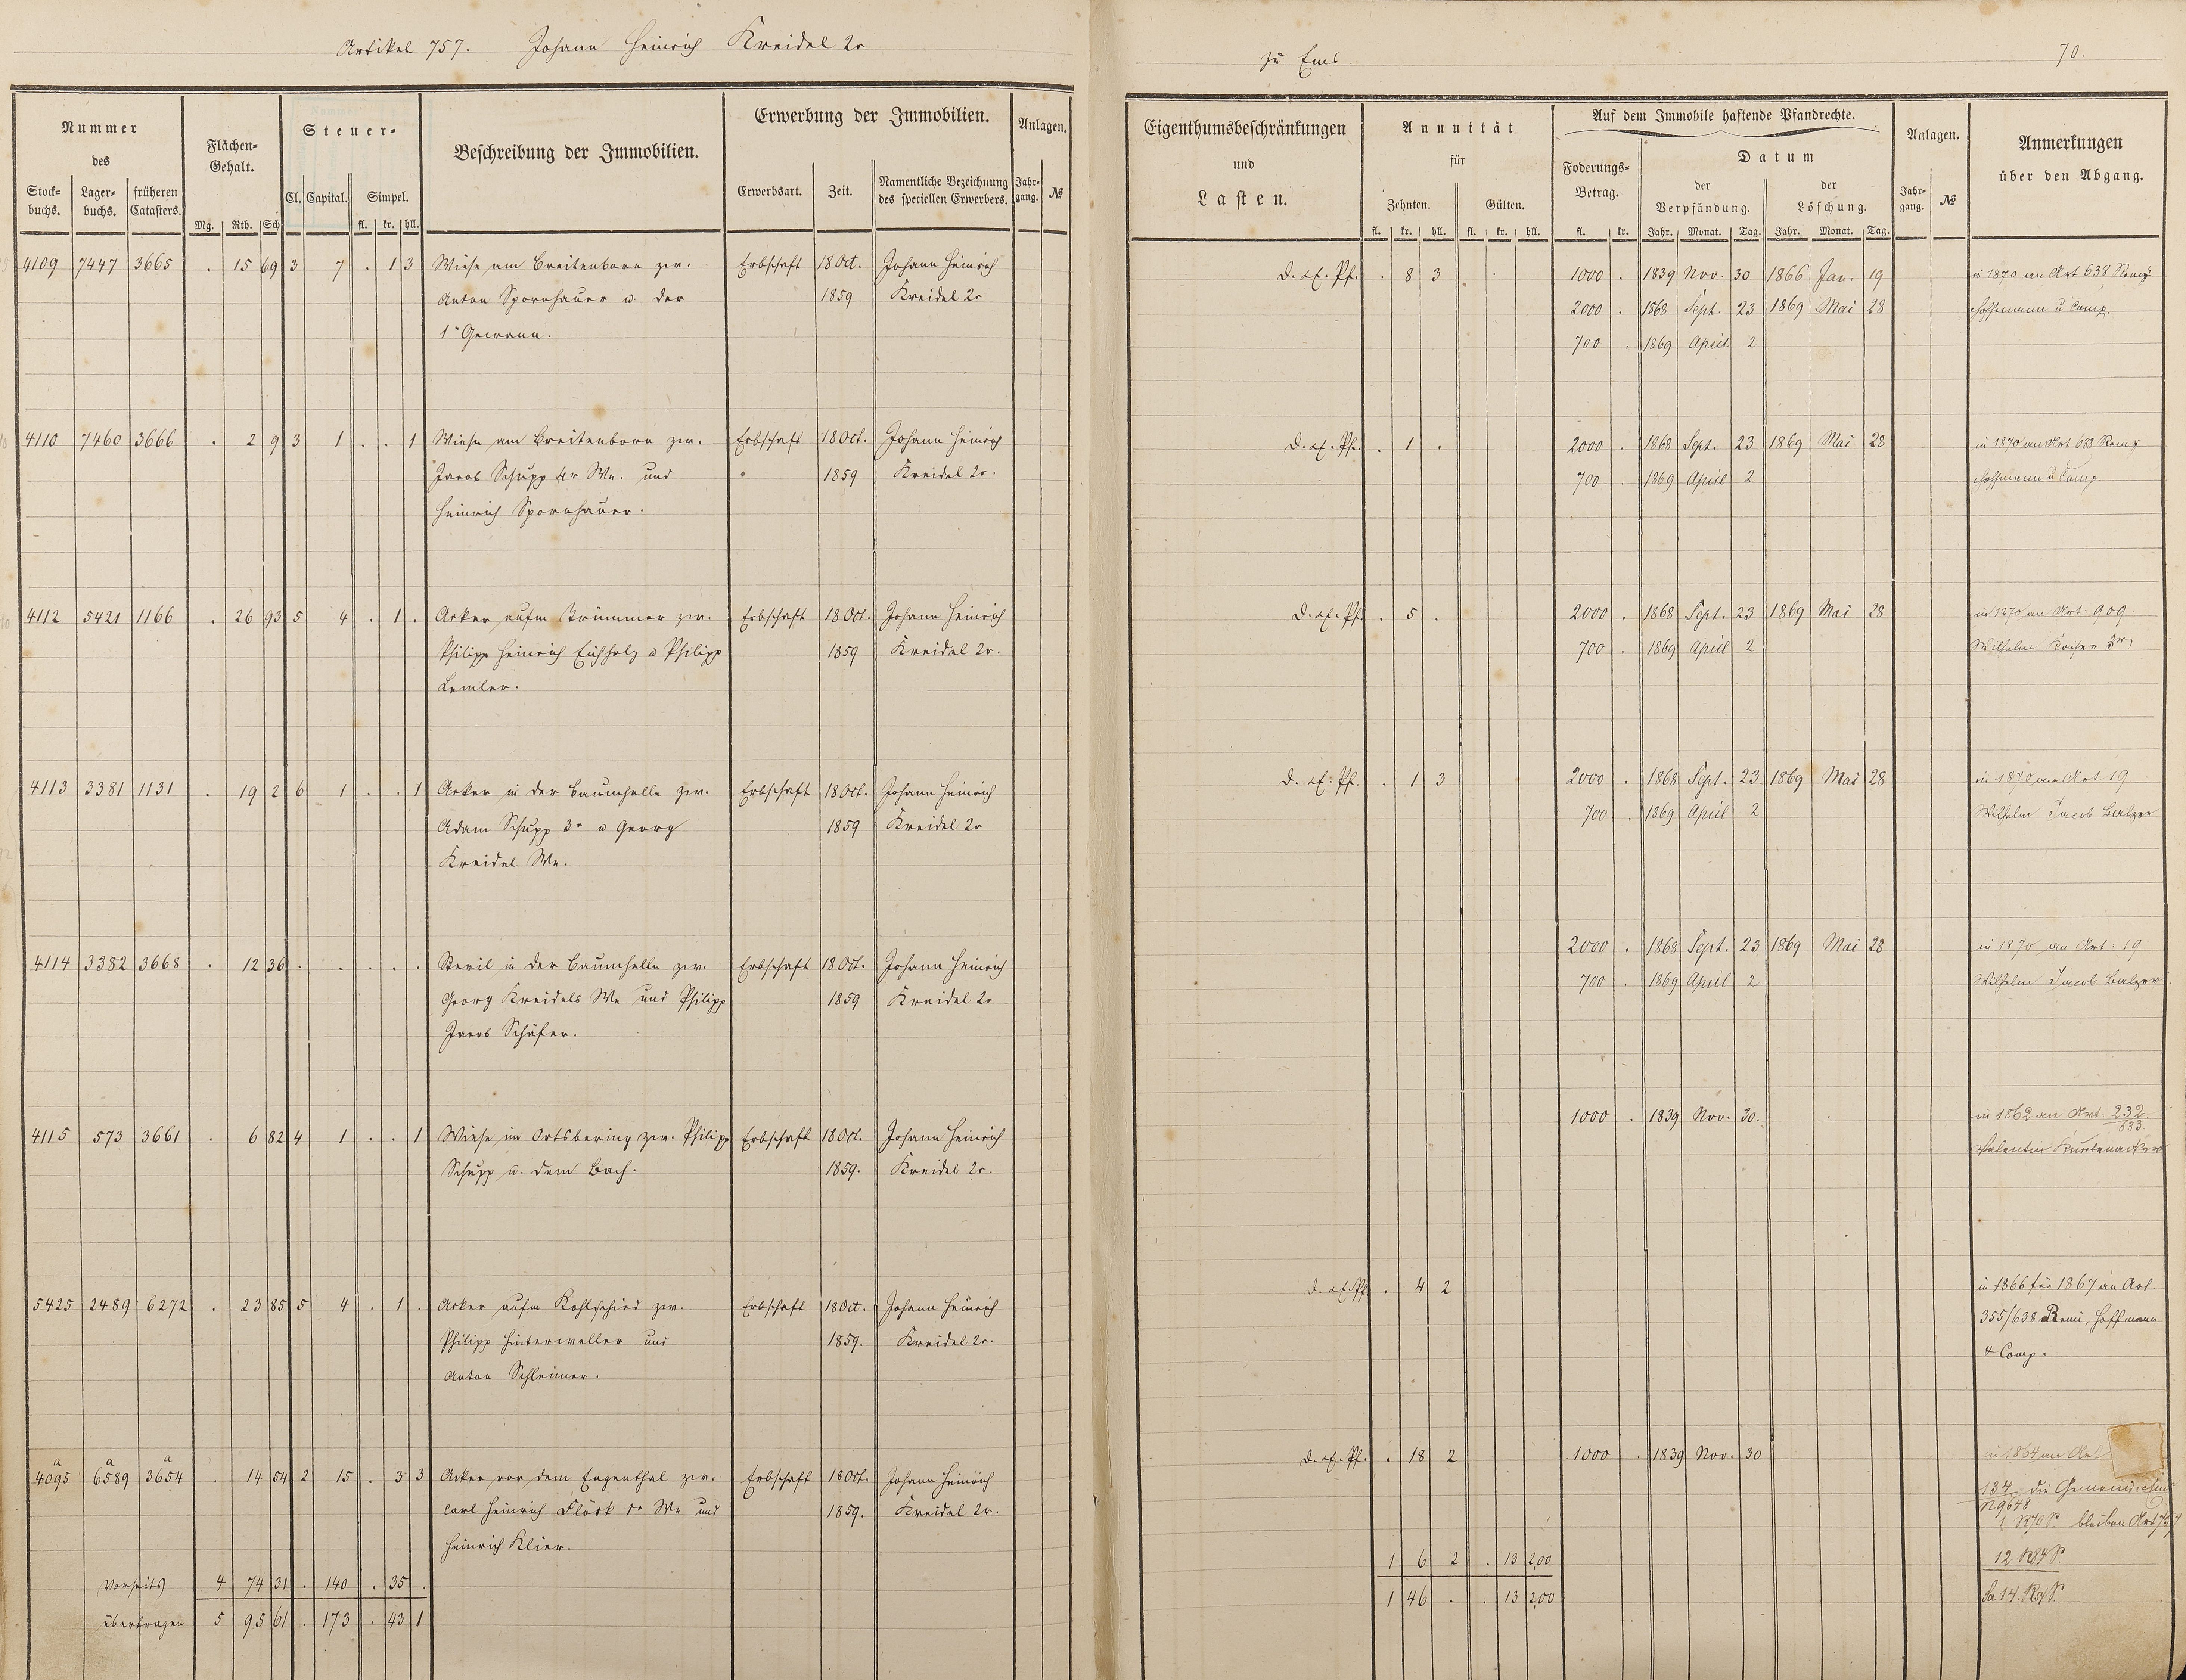 Artikel 757. Johann Heinrich Kreidel 2r
zu Ems
70.
Nummer
des
Stock-
buchs.
Lager-
buchs.
früheren
Catasters.
Flächen-
Gehalt.
Mg. Rth. Sch
Steuer-
Cl. Capital. Simpel.
fl. kr. hll.
Beschreibung der Immobilien.
Erwerbung der Immobilien.
Erwerbsart. Zeit.
Namentliche Bezeichnung
des speciellen Erwerbers.
Anlagen.
Jahr-
gang. №
Eigenthumsbeschränkungen
und
Lasten.
Annuität
für
Zehnten. Gülten.
fl. kr. hll. fl. kr. hll.
Auf dem Immobile haftende Pfandrechte.
Foderungs-
Betrag.
fl. kr.
Datum
der
Verpfändung.
der
Löschung.
Jahr. Monat. Tag. Jahr. Monat. Tag.
Anlagen.
Jahr-
gang. №
Anmerkungen
über den Abgang.
4109 7447 3665 . 15 69 3 7 . 1 3 Wiese am Breitenborn zw. Erbschaft 18 Oct. Johann Heinrich
Anton Spornhauer u. der 1859 Kreidel 2r
1n Gewann.
8 3 1000 . 1839 Nov. 30 1866 Jan. 19 in 1870 an Art 638 Remy
2000 . 1868 Sept. 23 1869 Mai 28 Hoffmann u Comp.
700 . 1869 April 2
4110 7460 3666 . 2 9 3 1 . . 1 Wiese am Breitenborn zw. Erbschaft 18 Oct. Johann Heinrich
Jacob Schupp 4r We. und 1859 Kreidel 2r.
Heinrich Spornhauer.
. 1 . 2000 . 1868 Sept. 23 1869 Mai 28 in 1870 an Art Remy
700 . 1869 April 2 Hoffmann u Comp
4112 5421 1166 . 26 93 5 4 . 1 . Acker aufm Krümmer zw. Erbschaft 18 Oct. Johann Heinrich
Philipp Heinrich Eichholz u Philipp 1859 Kreidel 2r.
Lemler.
. 5 . 2000 . 1868 Sept. 23 1869 Mai 28 in 1870 an Art. 909.
700 . 1869 April 2 Wilhelm Kaiser 3r
4113 3381 1131 . 19 2 6 1 . . 1 Acker in der Baumhelle zw. Erbschaft 18 Oct. Johann Heinrich
Adam Schupp 3r u Georg 1859 Kreidel 2r
Kreidel We.
. 1 3 2000 . 1868 Sept. 23 1869 Mai 28 in 1870 an Art 19
700 . 1869 April 2 Wilhelm Jacob Balzer
4114 3382 3668 . 12 36 . . . . . Steril in der Baumhelle zw. Erbschaft 18 Oct. Johann Heinrich
Georg Kreidels We und Philipp 1859 Kreidel 2r
Jacob Schäfer.
2000 . 1868 Sept. 23 1869 Mai 28 in 1870 an Art. 19
700 . 1869 April 2 Wilhelm Jacob Balzer
4115 573 3661 . 6 82 4 1 . . 1 Wiese im Ortsbering zw. Philipp Erbschaft 18 Oct. Johann Heinrich
Schupp u. dem Bach. 1859. Kreidel 2r.
1000 . 1839 Nov. 30. in 1862 an Art. 232
633.
Valentin
5425 2489 6272 . 23 85 5 4 . 1 . Acker aufm Kohlscheid zw. Erbschaft 18 Oct. Johann Heinrich
Philipp Hinterweller und 1859. Kreidel 2r.
Anton Schleimer.
. 4 2 in 1866 für 1867 an Art.
355/638 Remi, Hoffmann
& Comp.
a a a
4095 6589 3654 . 14 54 2 15 . 3 3 Acker vor dem Engenthal zw. Erbschaft 18 Oct. Johann Heinrich
Carl Heinrich Flöck 1r We und 1859. Kreidel 2r.
Heinrich Klier.
. 18 2 1000 . 1839 Nov. 30 in 1864 an Art
134 die Gemeinde
bleiben Art 757
Vorseits 4 74 31 . 140 . 35 .
1 6 2 . 13 200
übertragen 5 95 61 . 173 . 43 1
1 46 . . 13 200